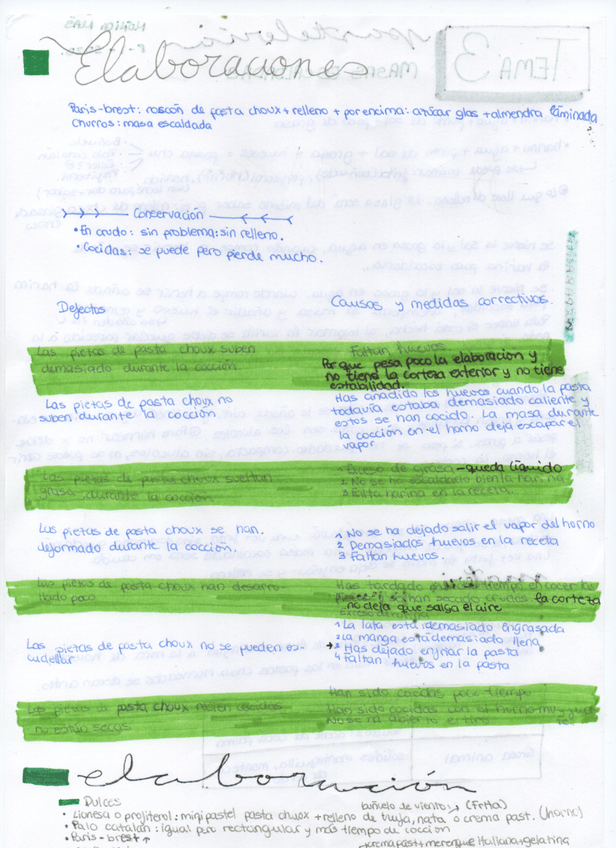 Elaboraciones
Paris-brest: roscón de pasta choux + relleno + por encima: azúcar glas + almendra laminada
Churros: masa escaldada
Conservación
• En crudo: sin problema: sin relleno.
• Cocidas: se puede pero pierde mucho.
Defectos
Causas y medidas correctivas.
Las pietas de pasta choux suben
demasiado durante la cocción
Faltan huevos
Porque pesa poco la elaboración y
no tiene la corteza exterior y no tiene
estabilidad.
Las pietas de pasta choux no
suben durante la cocción
Has añadido los huevos cuando la pasta
todavía estaba demasiado caliente y
estos se han cocido. La masa durante
la cocción en el horno deja escapar el
vapor
Las pietas de pasta choux sueltan
grasa durante la cocción
Exceso de grasa - queda líquido
2 No se ha escaldado bien la harina
3 Falta harina en la receta.
Las pietas de pasta choux se han
deformado durante la cocción.
1 No se ha dejado salir el vapor del horno
2 Demasiados huevos en la receta
3 Faltan huevos.
Las pietas de pasta choux han desarro-
llado poco
Has tardado tiempo en cocerlas
se han secado crudas la corteza
no deja que salga el aire
Las pietas de pasta choux no se pueden es-
cudellar
1 La lata está demasiado engrasada
2 La manga está demasiado llena
→ 3 Has dejado enfriar la pasta
4 Faltan huevos en la pasta
Las pietas de pasta choux cocidas
no están secas
Han sido cocidas poco tiempo
Han sido cocidas con el horno muy
No se ha abierto el tiro
elaboración
Dulces
buñuelo de viento: (frita)
• Lionesa o profiterol: mini pastel pasta choux + relleno de trufa, nata o crema past. (horno)
• Palo catalán: igual pero rectangular y más tiempo de cocción
• Paris-brest
crema past + merengue italiano + gelatina